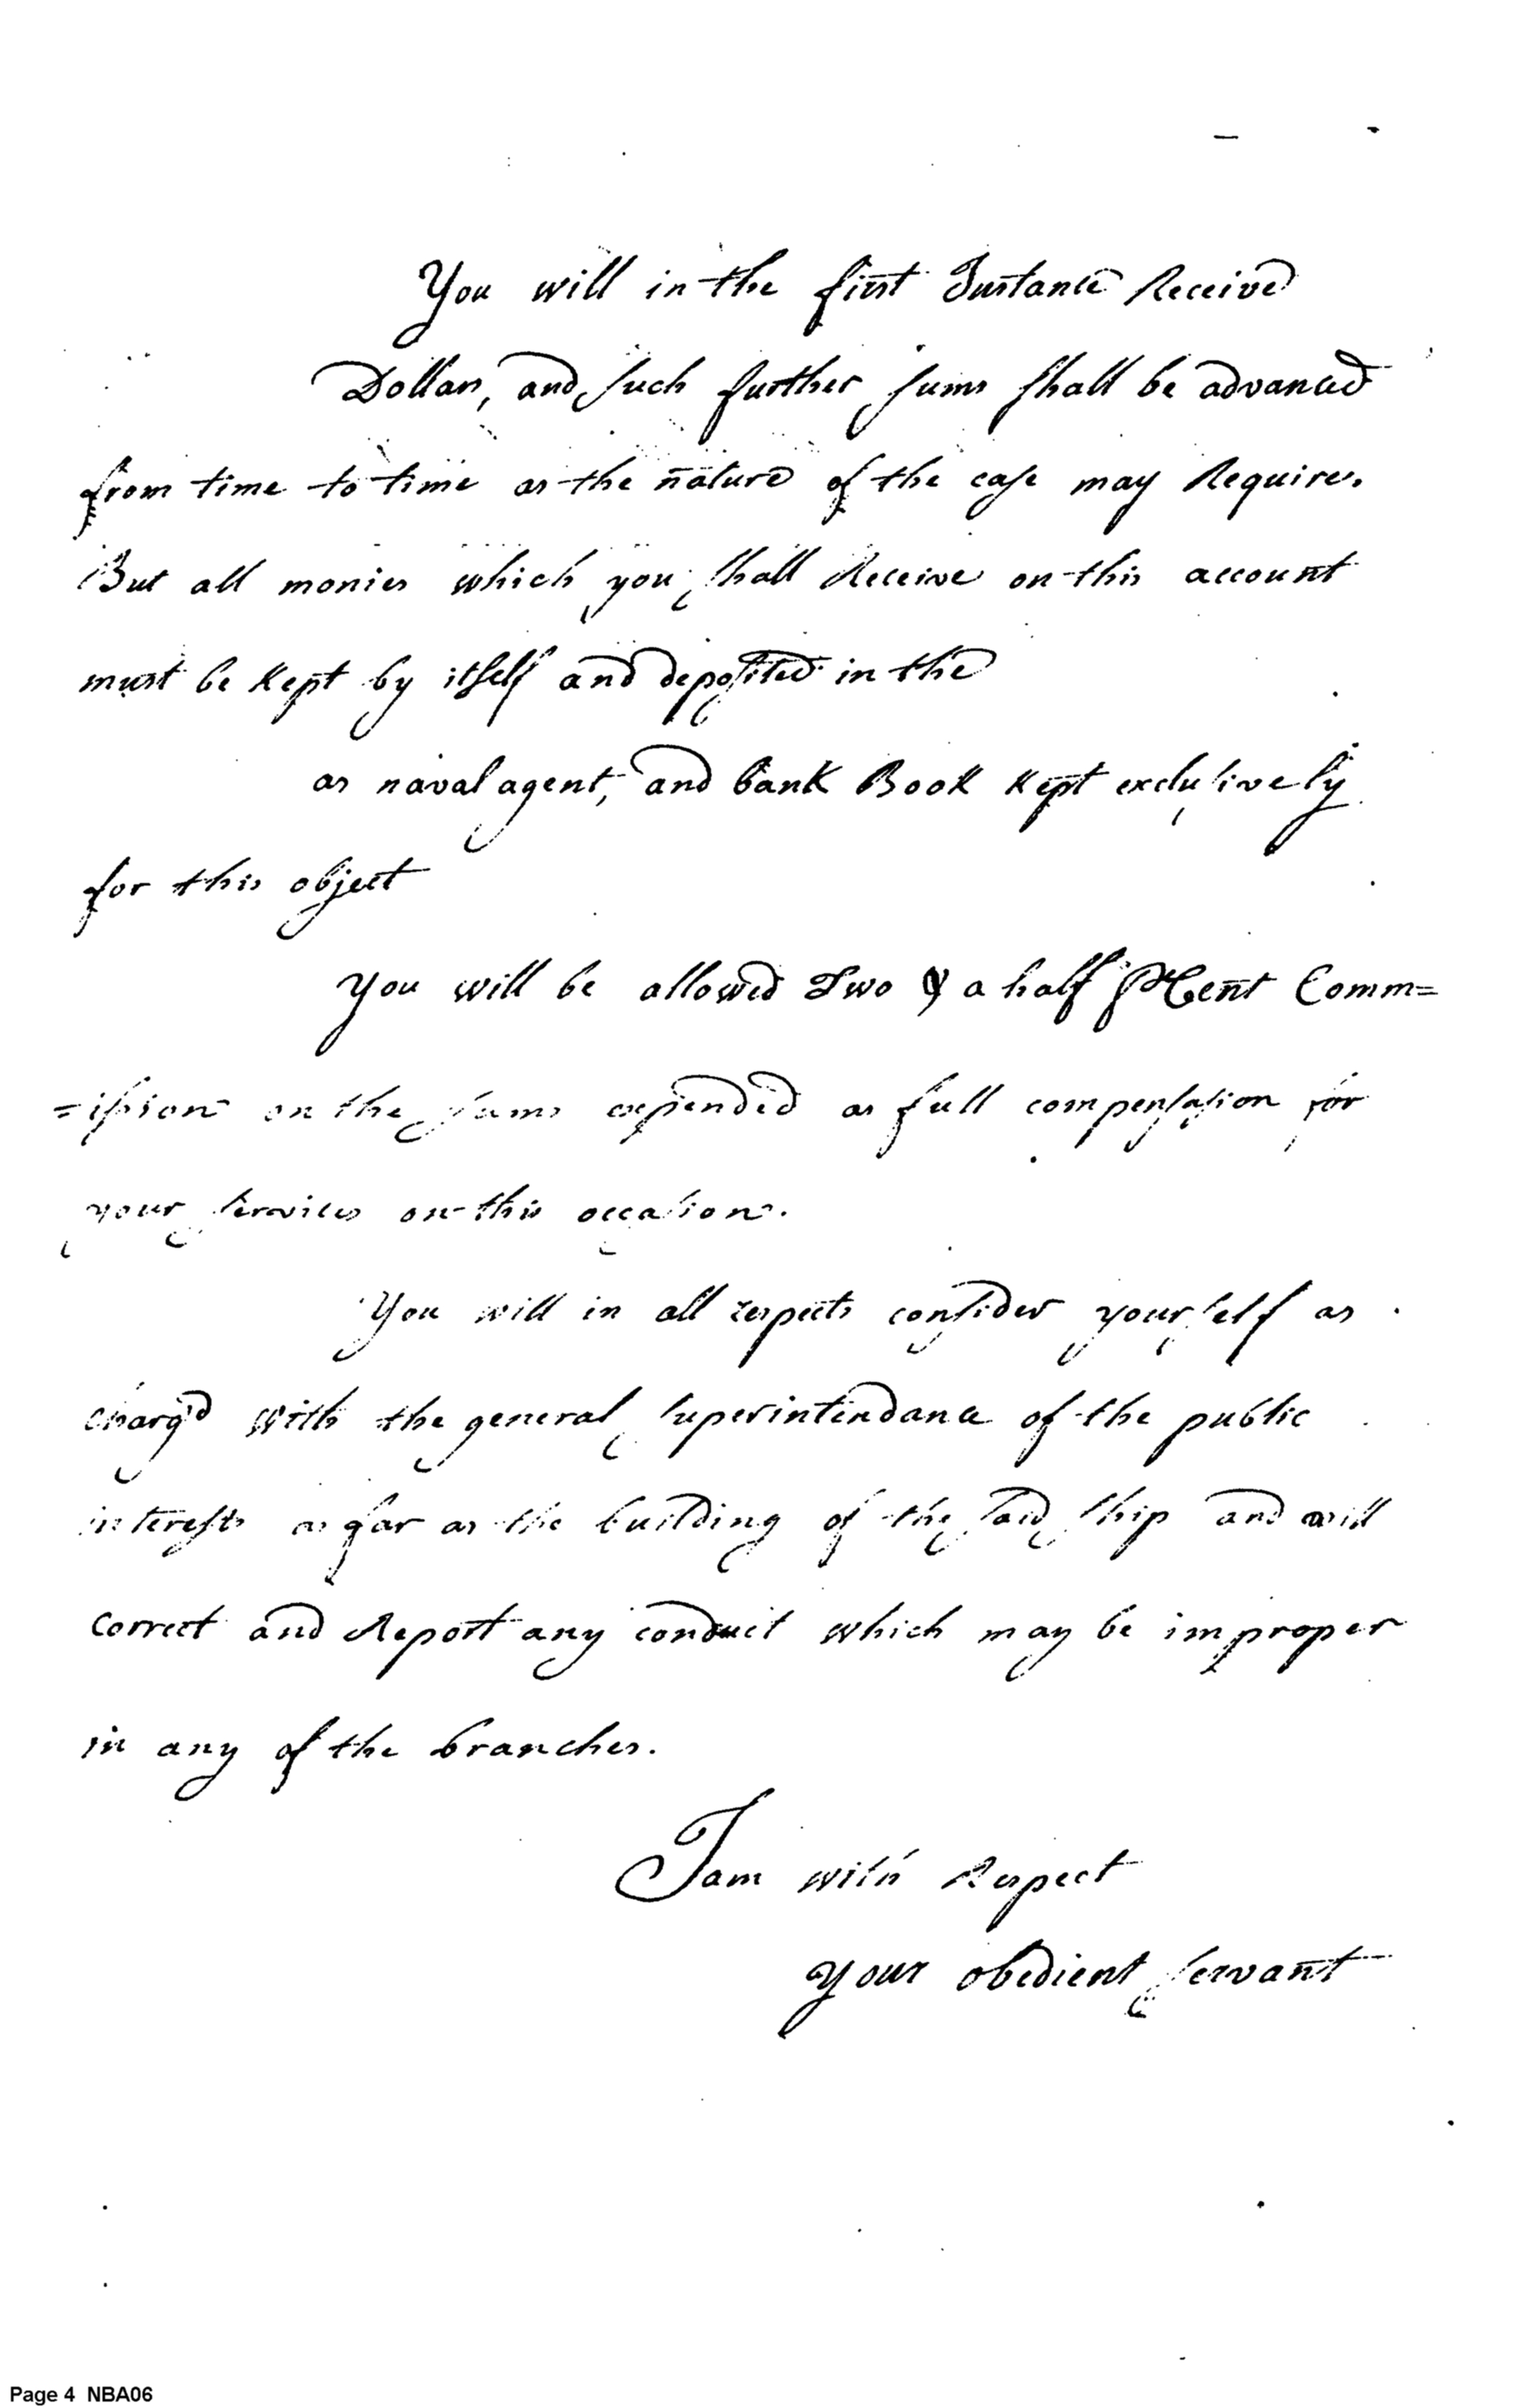 You will in the first Instance Receive
Dollars, and such further sums shall be advanced
from time to time as the nature of the case may Require.
But all monies which you shall Receive on this account
must be kept by itself and deposited in the
as naval agent, and bank Book kept exclusively
for this object
You will be allowed Two & a half P Cent Comm=
=ission on the sums expended as full compensation for
your services on this occasion.
You will in all respects consider yourself as
charg'd with the general superintendance of the public
interests as far as the building of the said ship and will
correct and Report any conduct which may be improper
in any of the branches.
I am with Respect
your obedient servant
Page 4 NBA06